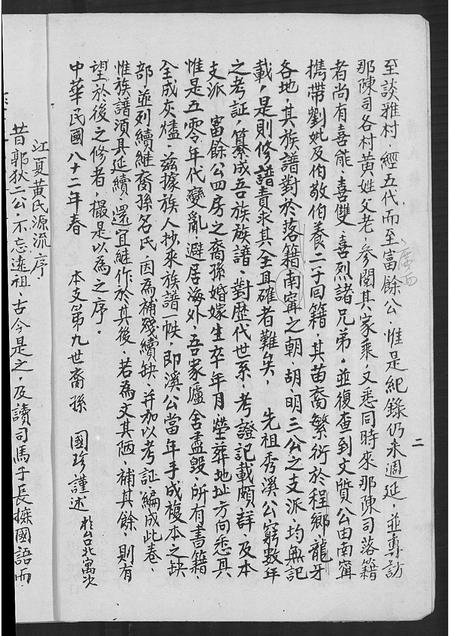 二
至談雅村，經五代，而至富餘公，惟是紀錄仍未週延，並專訪
那陳司各村黃姓父老，參閱其家乘，又悉同時來那陳司落籍
者尚有喜能、喜雙、喜烈諸兄弟，並復查到文質公由南寗
攜帶劉妣及伯敬伯養二子回籍，其苗裔繁衍於程鄉、龍牙
各地，其族譜對於落籍南寗之朝、胡、明三公之支派，均無記
載，是則修譜責求其全且確者難矣，先祖秀溪公窮數年
之考証，纂成吾族族譜，對歷代世系，考證記載頗詳，及本
支派，富餘公四房之裔孫婚嫁生卒年月，塋葬地址方向悉具，
惟是五零年代變亂，避居海外，吾家廬舍盡毀，所有書籍
全成灰燼，茲據族人抄來族譜一帙，即溪公當年手成複本之缺
部，並列續維裔孫名氏，因為補殘續缺，并加以考証編成此卷，
惟族譜須具延續，還宜繼作於其後，若為文其陋，補其餘，則有
望於後之修者，撮是以為之序，
中華民國八十二年春 本支第九世裔孫 國珍謹述 於台北寓次
江夏黃氏源流序
昔郭狄二公，不忘遠祖，古今是之，及讀司馬子長採國語而